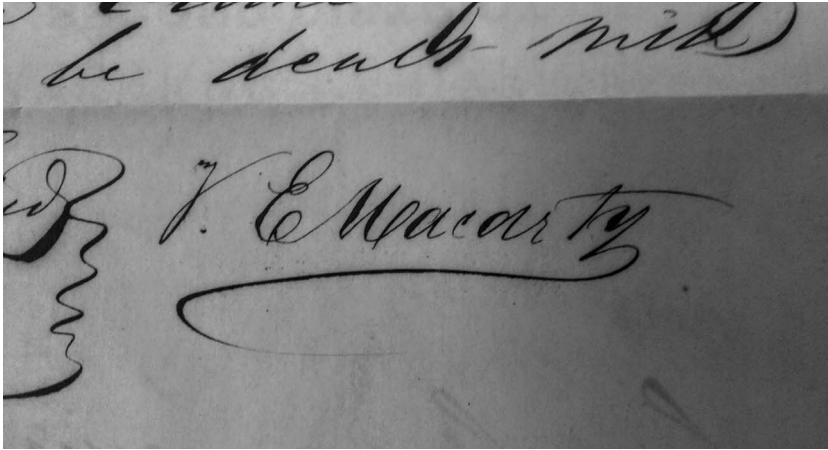 be dealt with
V. E Macarty